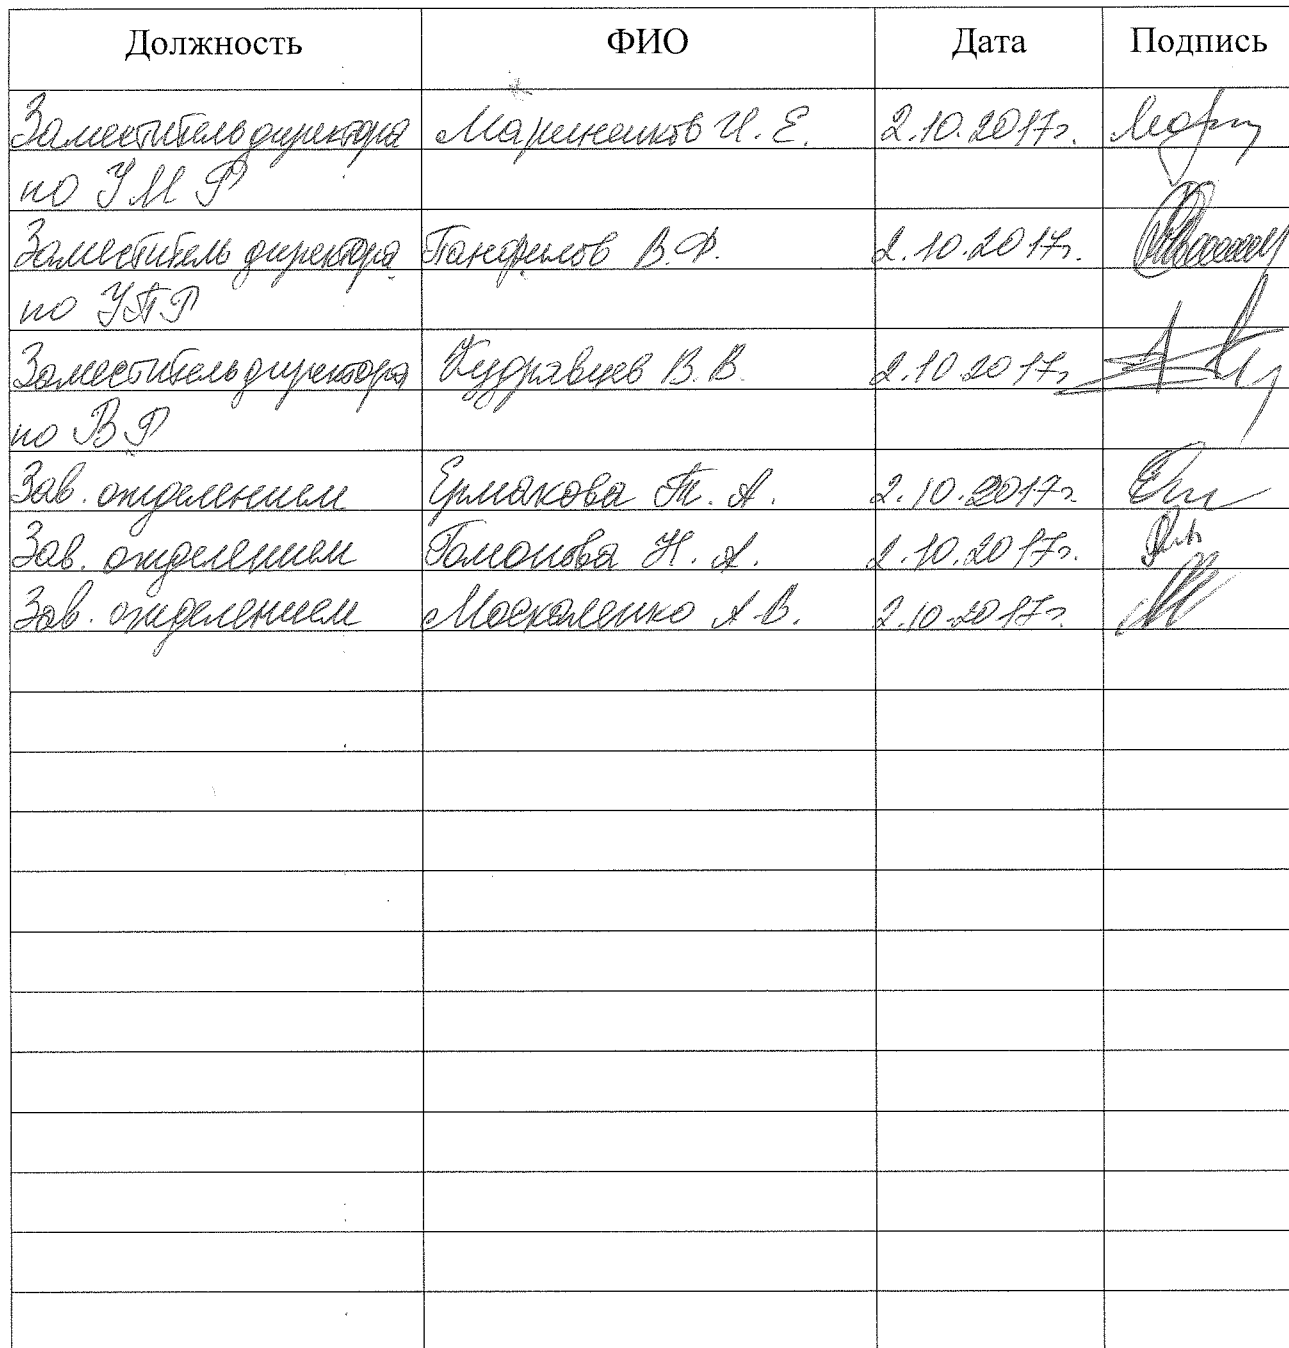 Должность ФИО Дата Подпись
Заместитель директора Мариненков И. Е. 2.10.2017г.
по УМР
Заместитель директора Панфилов В.Ф. 2.10.2017г.
по УПР
Заместитель директора Кудрявцев В.В. 2.10.2017г.
по ВР
Зав. отделением Ермакова Т. А. 2.10.2017г.
Зав. отделением Гомонова Н. А. 2.10.2017г.
Зав. отделением Москаленко А.В. 2.10.2017г.